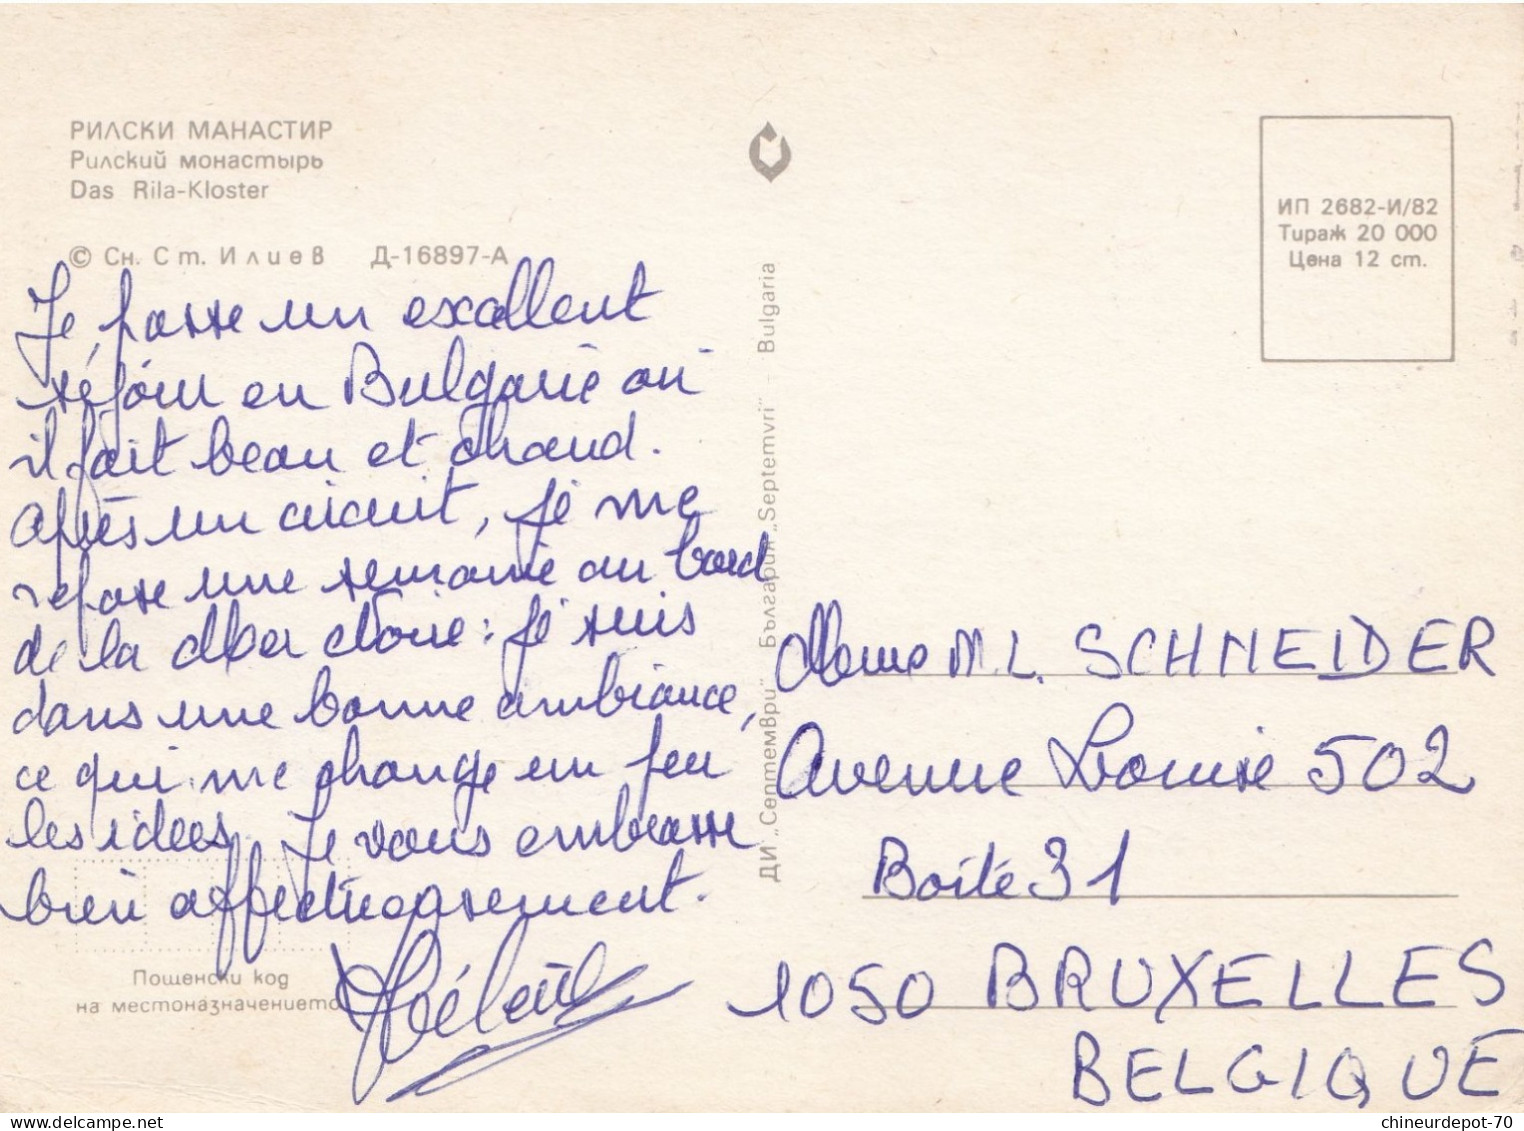 РИЛСКИ МАНАСТИР
Рилский монастырь
Das Rila-Kloster
© Сн. Ст. Илиев Д-16897-А
Je passe un excellent
séjour en Bulgarie où
il fait beau et chaud.
Après un circuit, je me
repose une semaine au bord
de la Mer Noire : je suis
dans une bonne ambiance,
ce qui me change un peu
les idées. Je vous embrasse
bien affectueusement.
Пощенски код
на местоназначението
ДИ „Септември" България „Septemvri" Bulgaria
ИП 2682-И/82
Тираж 20 000
Цена 12 ст.
Mme M.L. SCHNEIDER
Avenue Louise 502
Boîte 31
1050 BRUXELLES
BELGIQUE
delcampe.net
chineurdepot-70